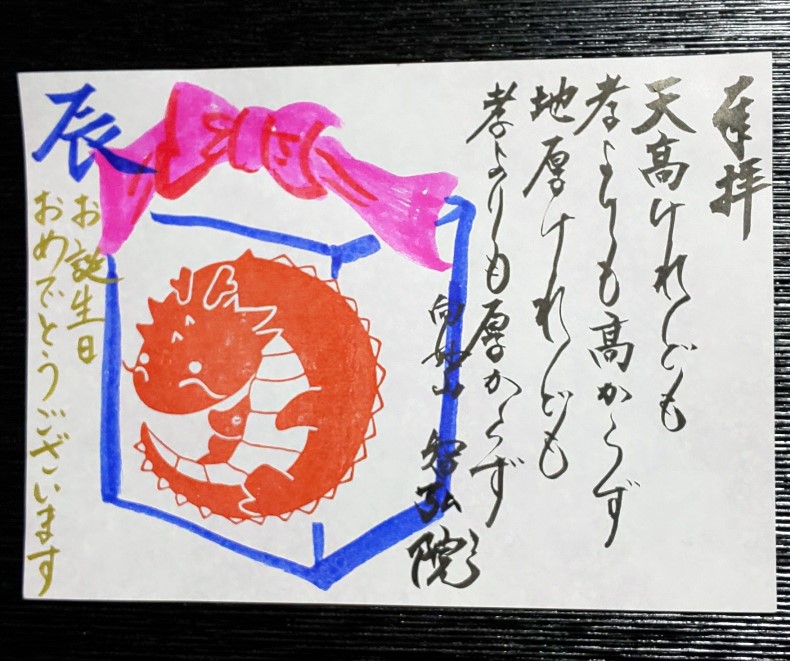 奉拝
天高けれども
孝よりも高からず
地厚けれども
孝よりも厚からず
向妙山 智弘院
辰
お誕生日
おめでとうございます